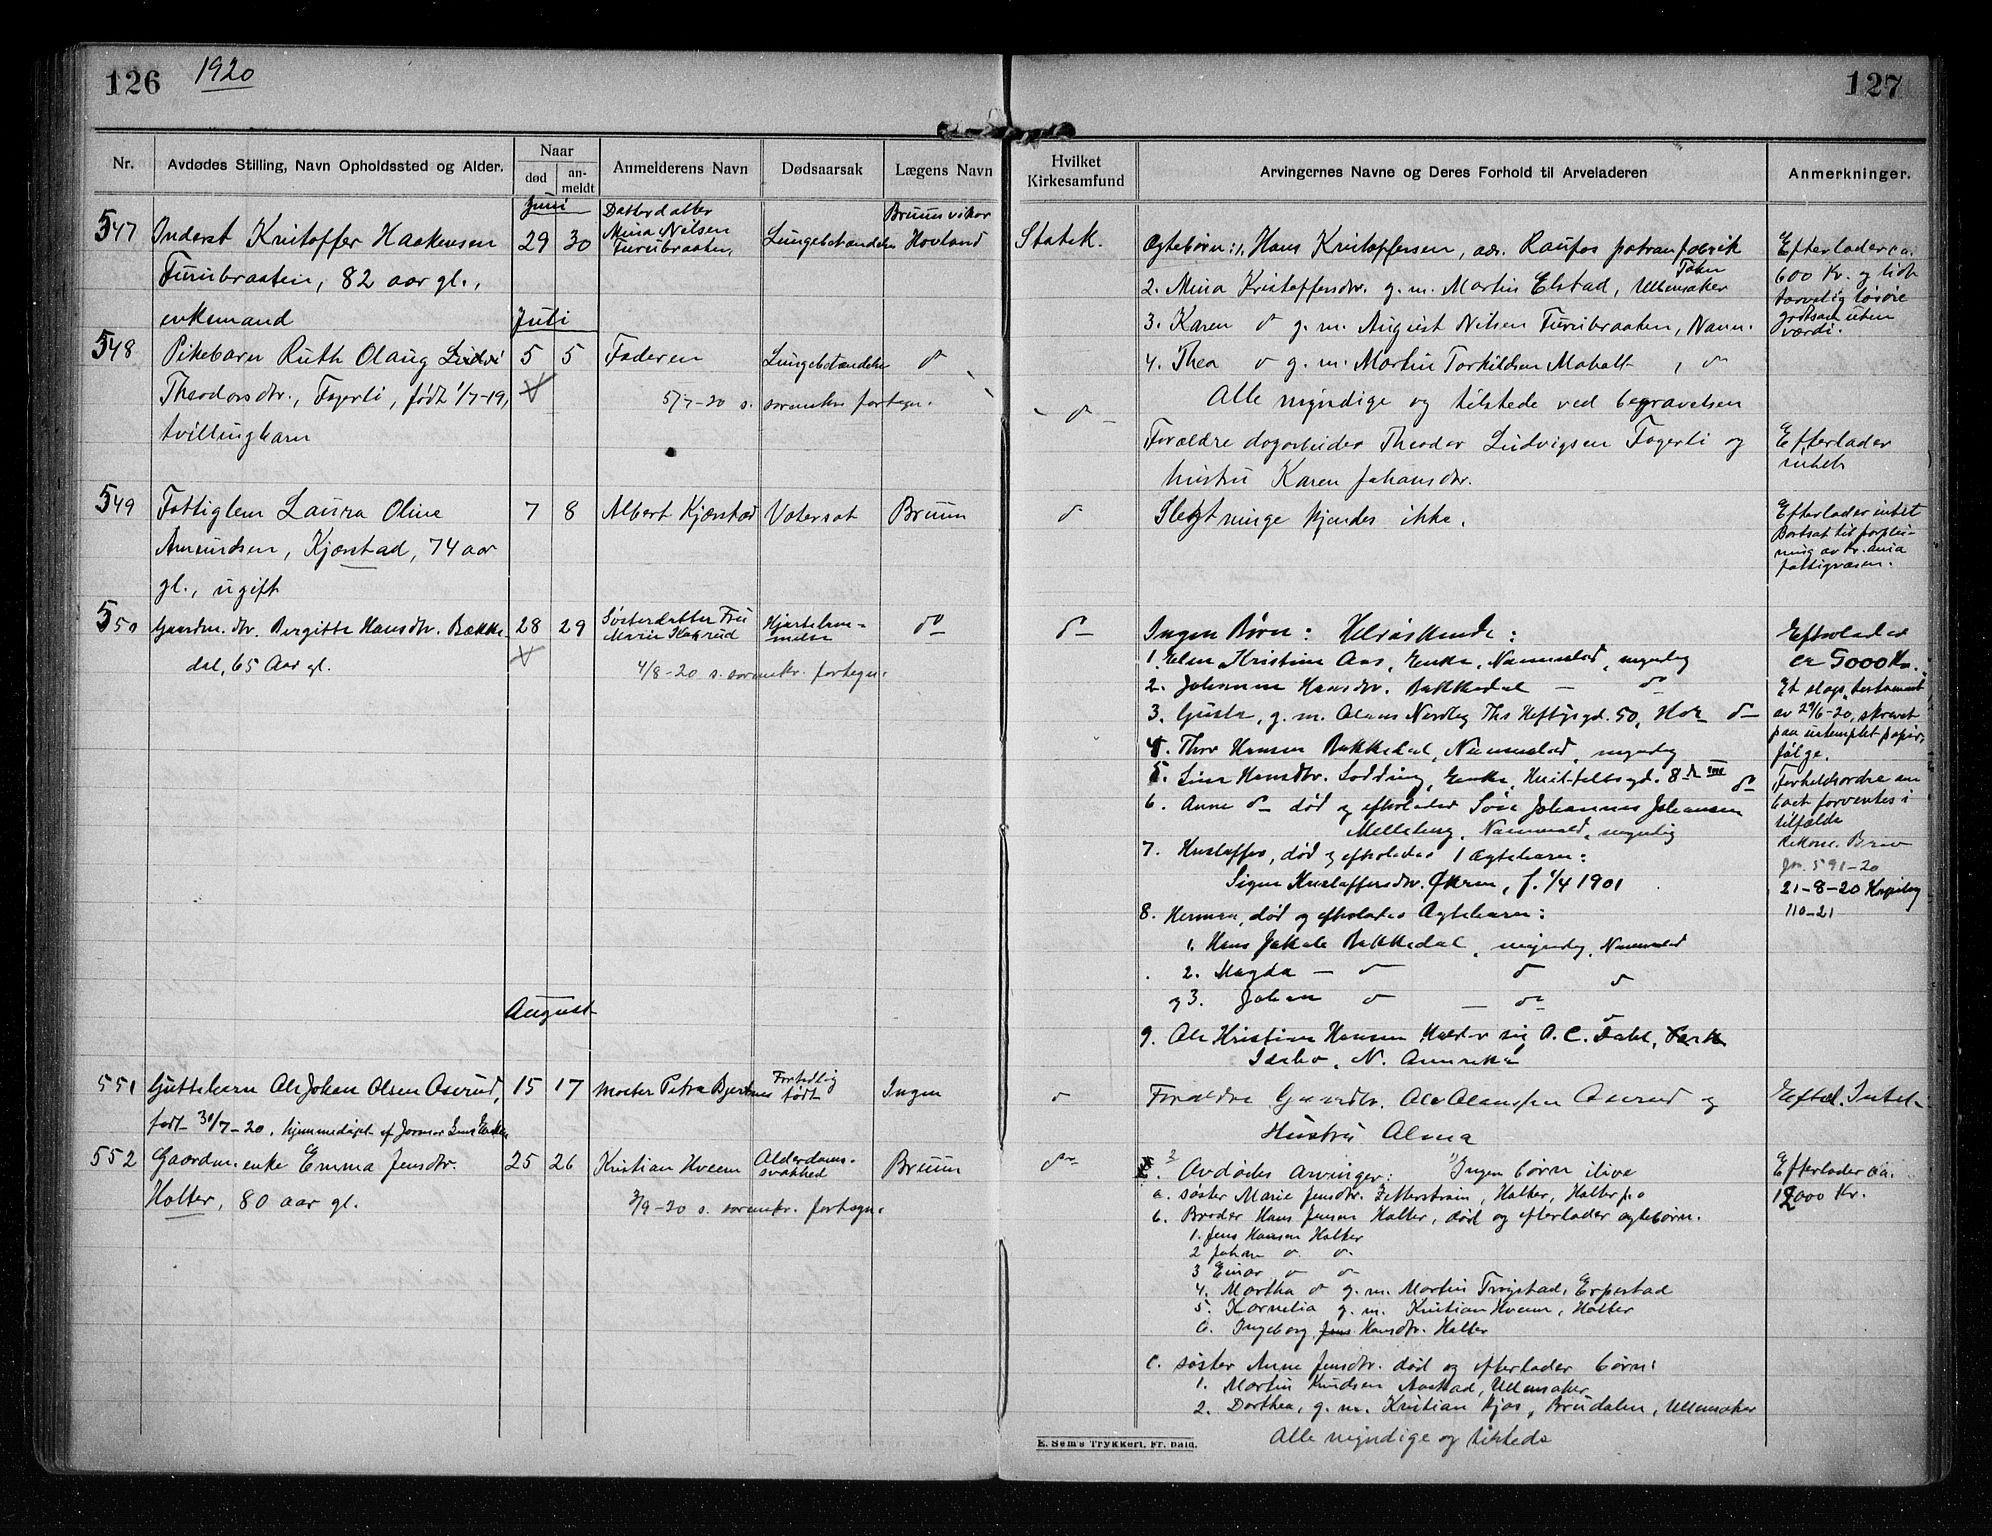 126
1920
127
Nr.
Avdødes Stilling, Navn Opholdssted og Alder.
Naar
død
an-
meldt
Anmelderens Navn
Dødsaarsak
Lægens Navn
Hvilket
Kirkesamfund
Arvingernes Navne og Deres Forhold til Arveladeren
Anmerkninger.
Juni
547
Inderst Kristoffer Haakensen
Furubraaten, 82 aar gl.,
enkemand
29
30
Datterdatter
Mina Nilsen
Furubraaten,
Lungebetændelse
Bruuns vikar
Hovland
Statsk.
Egtebørn: 1, Hans Kristoffersen, adr. Raufos patronfabrik
2. Mina Kristoffersdtr. g. m. Martin Elstad, Ullensaker
3. Karen d g. m. August Nilsen Furubraaten, Nann.
4. Thea d g. m. Martin Torkildsen
Alle myndige og tilstede ved begravelsen
Efterlader ca.
600 Kr. og lidt
tarvelig løsøre
uten
værdi.
Juli
548
Pikebarn Ruth Olaug
Theodorsdtr., Fagerli, født 1/7-19,
tvillingbarn
5
5
Faderen
Lungebetændelse
d
5/7-20 s. sorenskr. fortegn.
d
Forældre dagarbeider Theodor Ludvigsen Fagerli og
hustru Karen Johansdtr.
Efterlader
intet
549
Fattiglem Laura Oline
Amundsen, Kjærstad, 74 aar
gl., ugift
7
8
Albert Kjærstad
Vatersot
Bruun
d
Slegtninge kjendes ikke.
Efterlader intet
Bortsat til forplei-
ning av Kr.ania
fattigvæsen.
550
Gaardm. dtr. Birgitte Hansdtr. Bække-
dal, 65 Aar gl.
28
29
Søsterdatter Fru
Marie Hagrud
Hjertelam-
melse
do
4/8-20 s. sorenskr. fortegn.
d
Ingen Børn: Helsøskende:
1. Elen Kristine Aas, Enke, Nannestad, myndig
2. Johanne Hansdtr. Bækkedal — do
3. Gusta, g. m. Olaus Nordby Ths Heftyesgd. 50,
4. Thor Hansen Bækkedal, Nannestad, myndig
5. Lina Hansdtr. Lodding, Enke, Huitfeldtsgd. 8
6. Anne d død og efterlader Søn Johannes Johansen
Melleberg, Nannestad, myndig
7. Kristoffer, død og efterlader 1 Ægtebarn:
Signe Kristoffersdtr. Økren, f. 1/4 1901
8. Herman, død og efterlader Ægtebarn:
1. Hans Jakob Bækkedal, myndig, Nannestad
2. Magda — d d d
og 3. Johan d — do
9. Ole Kristian Hansen kalder sig O. C. Dahl,
Idaho, N. Amerika
Efterlader
ca 5000 Kr.
Et slags testament
av 29/6-20, skrevet
paa ustemplet papir,
følge.
Forholdsordre om
boet forventes i
tilfælde
Rekom. Brev
Jn. 591-20
21-8-20
110-21
August
551
Guttebarn Ole Johan Olsen Aserud,
født 30/7-20, hjemmedøpt af
15
17
Moster Petra Bjertnes
Fortidlig
født
Ingen
d
Forældre Gaardbr. Ole Olaussen Aserud og
Hustru Alma
Efterl. Intet
552
Gaardm. enke Emma Jensdtr.
Holter, 80 aar gl.
25
26
Kristian Hveem
Alderdoms-
svakhed
Bruun
3/9-20 s. sorenskr. fortegn.
do
2. Avdødes arvinger: 1) Ingen børn ilive
a. søster Marie Jensdtr. Zetterstrøm, Holter, Holter p.o
b. Broder Hans Jensen Holter, død og efterlader egtebørn.
1. Jens Hansen Holter
2 Johan d. d.
3 Einar d d
4. Martha d g. m. Martin Trøgstad, Erpestad
5. Kornelia g. m. Kristian Hveem, Holter
6. Ingeborg Hansdtr. Holter
c. søster Anne Jensdtr. død og efterlader børn:
1. Martin Knudsen Aastad, Ullensaker
2. Dorthea, g. m. Kristian Kjos, Brudalen, Ullensaker
Alle myndige og tilstede
Efterlader ca.
12000 Kr.
E. Sem's Trykkeri, Fr. hald.